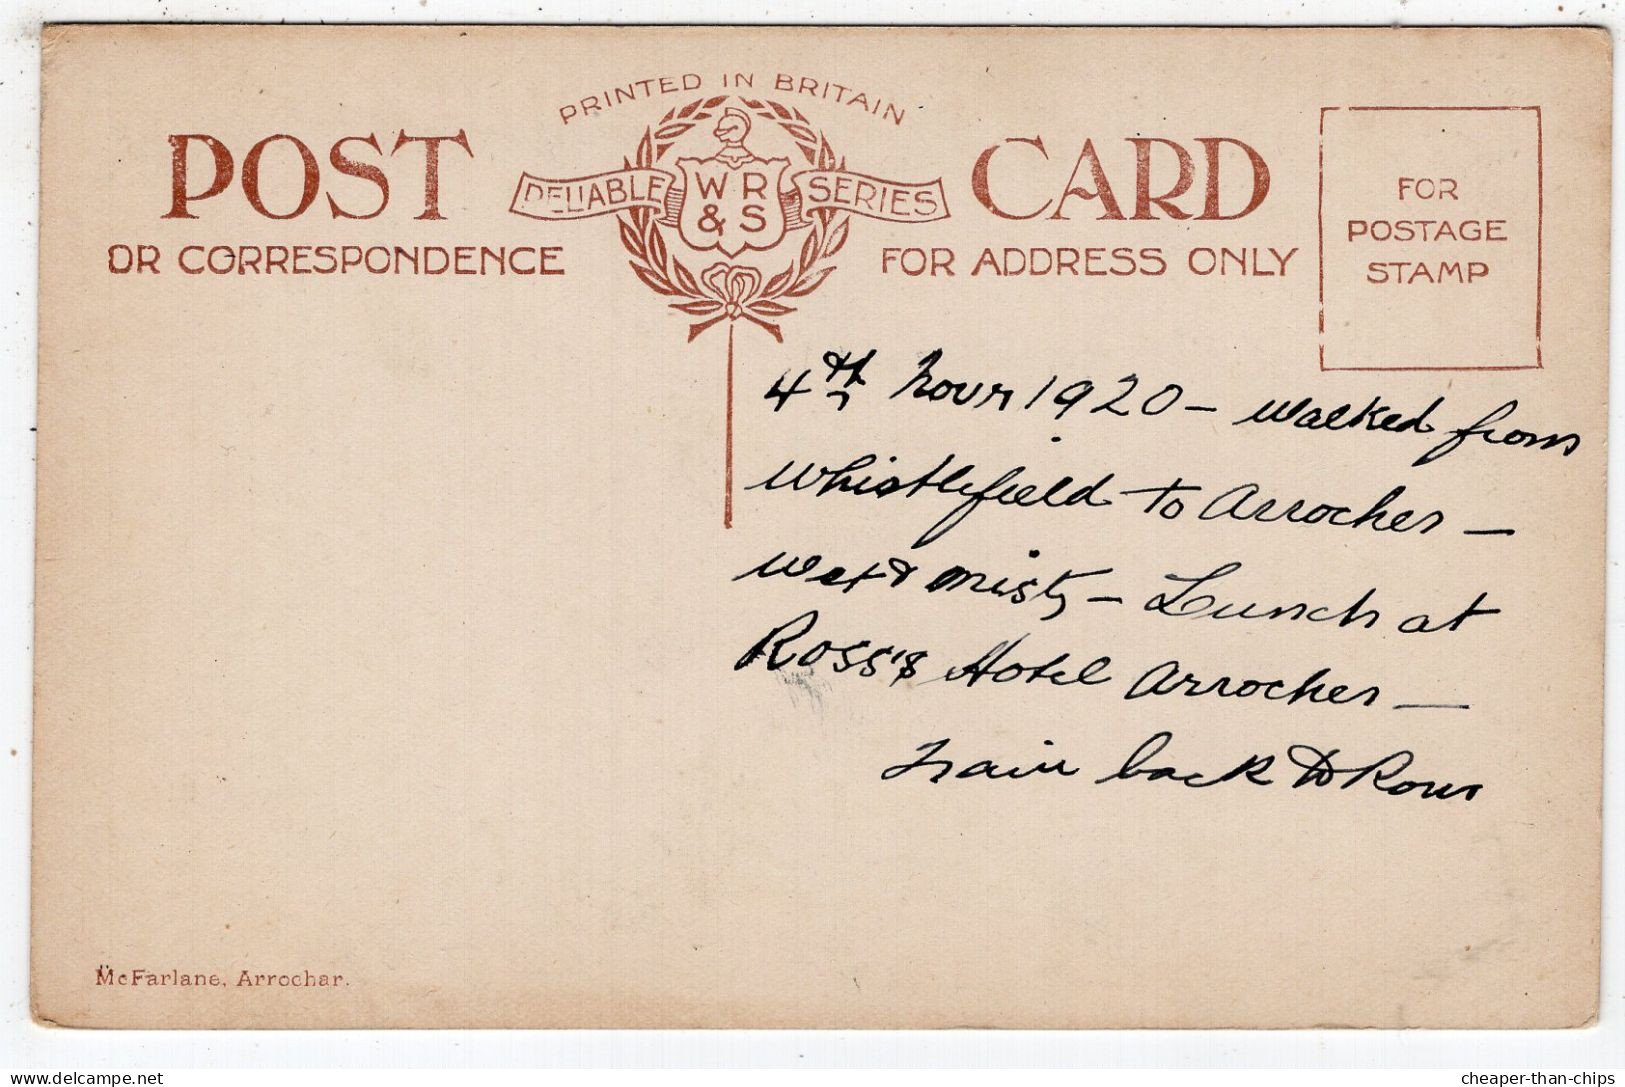 PRINTED IN BRITAIN
POST CARD
RELIABLE W R & S SERIES
OR CORRESPONDENCE
FOR ADDRESS ONLY
FOR
POSTAGE
STAMP
4th Novr 1920 – walked from
Whistlefield to Arrocher –
wet & misty – Lunch at
Ross's Hotel Arrocher –
train back to Row
McFarlane, Arrochar.
delcampe.net
cheaper-than-chips